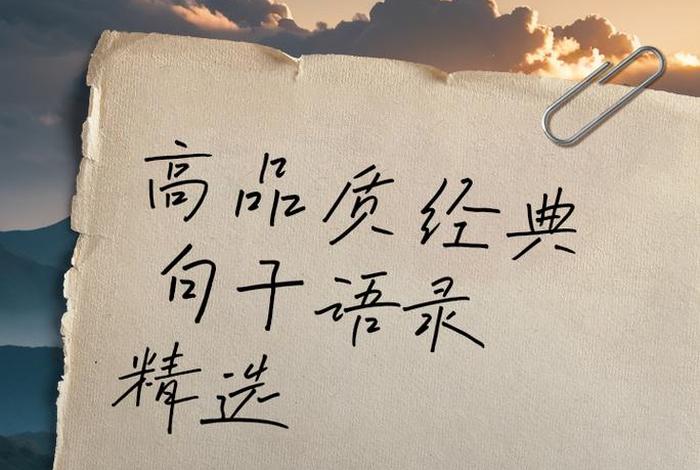 高品质经典
句子语录
精选